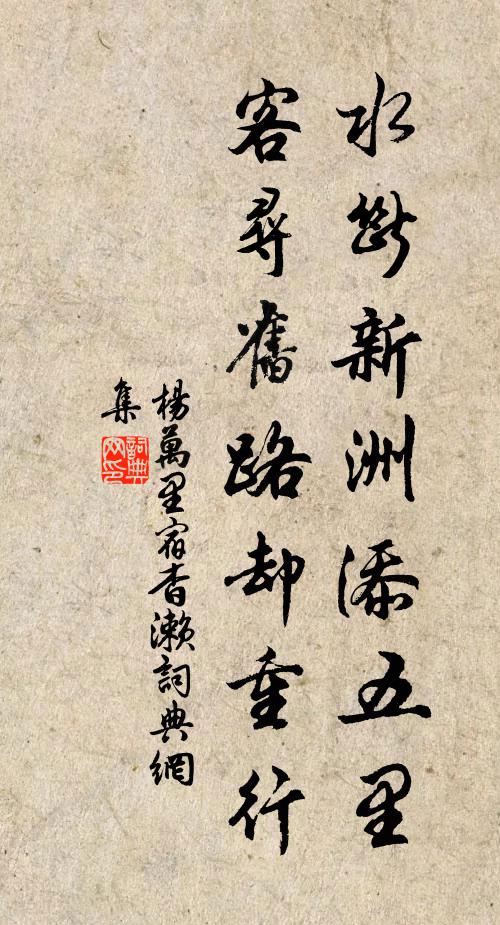 水断新洲添五里
客尋舊路却重行
楊萬里宿杳瀨詞典網
集
詞典网印